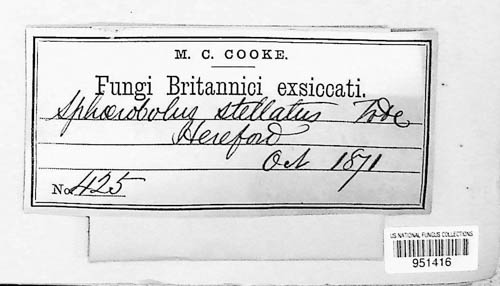 M. C. COOKE.
Fungi Britannici exsiccati.
Sphærobolus stellatus Tode
Hereford
Oct 1871
No. 425
US NATIONAL FUNGUS COLLECTIONS
951416